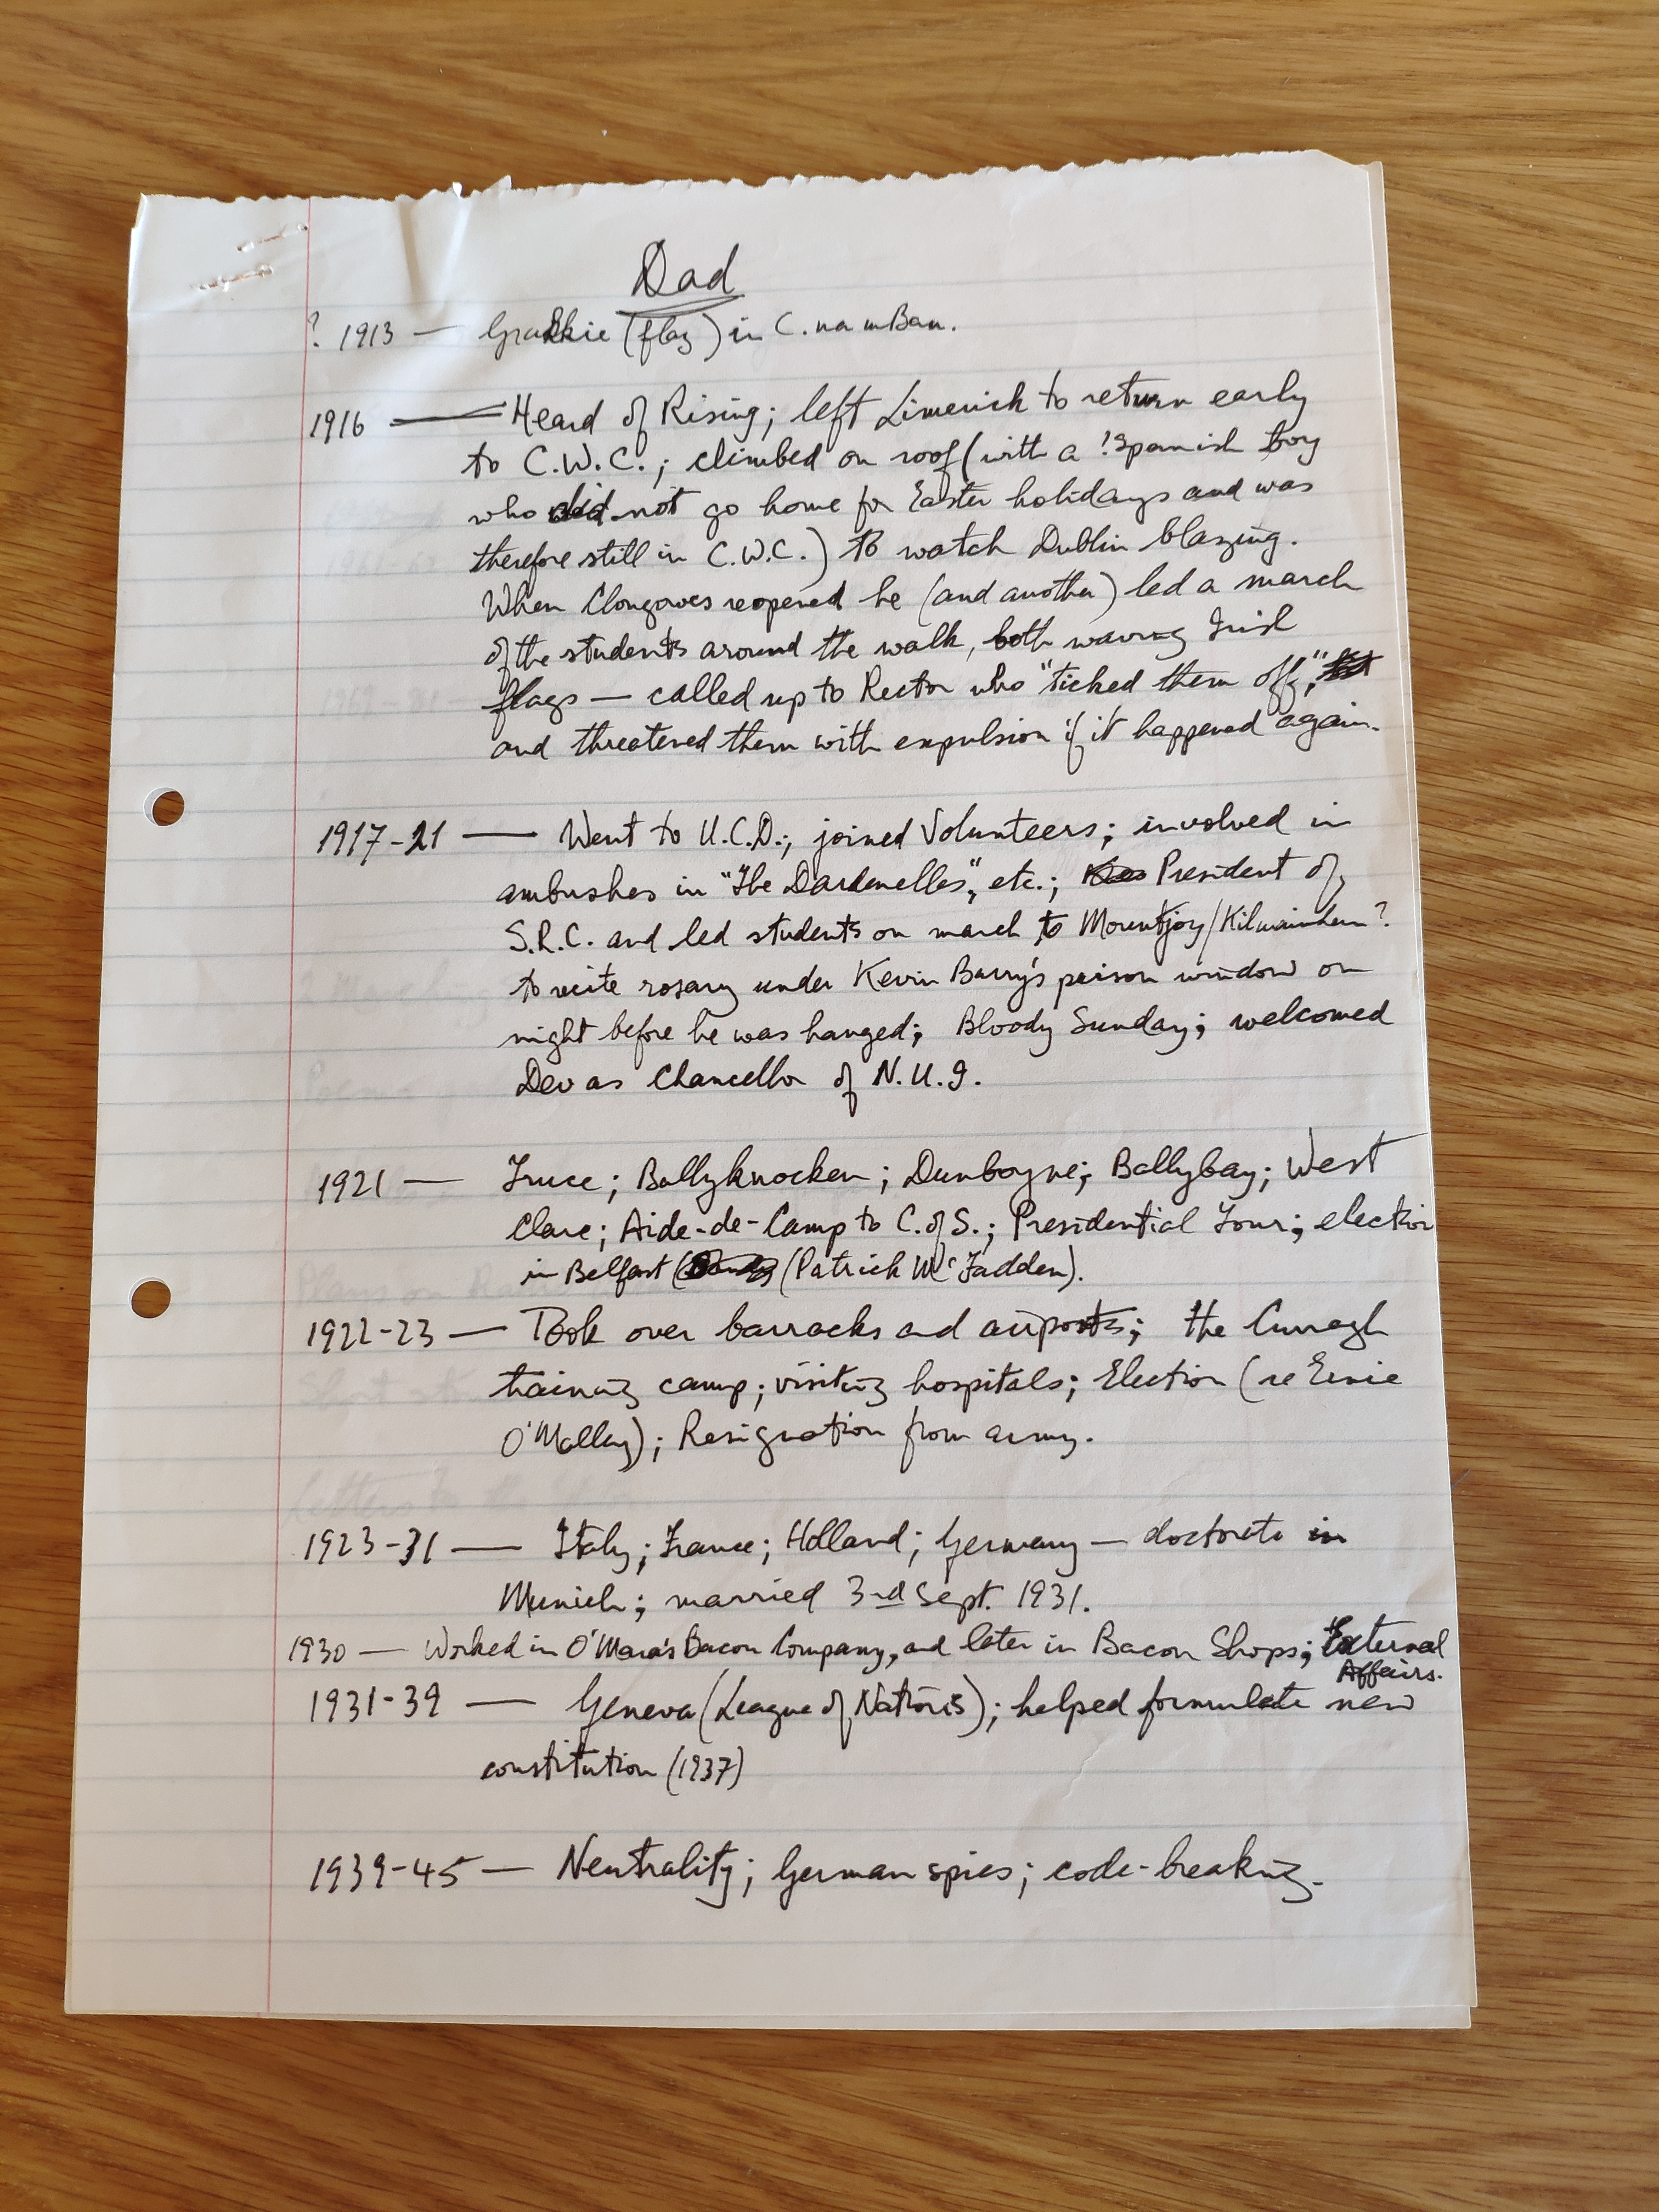 Dad
? 1913 — (flag) in C. na mBan.
1916 — Heard of Rising; left Limerick to return early
to C.W.C.; climbed on roof (with a ?Spanish boy
who did not go home for Easter holidays and was
therefore still in C.W.C.) to watch Dublin blazing.
When Clongowes reopened he (and another) led a march
of the students around the walk, both waving Irish
flags — called up to Rector who "ticked them off,"
and threatened them with expulsion if it happened again.
1917-21 — Went to U.C.D.; joined Volunteers; involved in
ambushes in "The Dardenelles", etc.; President of
S.R.C. and led students on march to Mountjoy/Kilmainham?
to recite rosary under Kevin Barry's prison window on
night before he was hanged; Bloody Sunday; welcomed
Dev as Chancellor of N.U.I.
1921 — Truce; Ballyknocken; Dunboyne; Ballybay; West
Clare; Aide-de-Camp to C. of S.; Presidential Tour; election
in Belfast (Patrick McFadden).
1922-23 — Took over barracks and airports; the Curragh
training camp; visiting hospitals; Election (re Ernie
O'Malley); Resignation from army.
1923-31 — Italy; France; Holland; Germany — doctorate in
Munich; married 3rd Sept. 1931.
1930 — Worked in O'Mara's Bacon Company, and later in Bacon Shops; External
Affairs.
1931-39 — Geneva (League of Nations); helped formulate new
constitution (1937)
1939-45 — Neutrality; German spies; code-breaking.